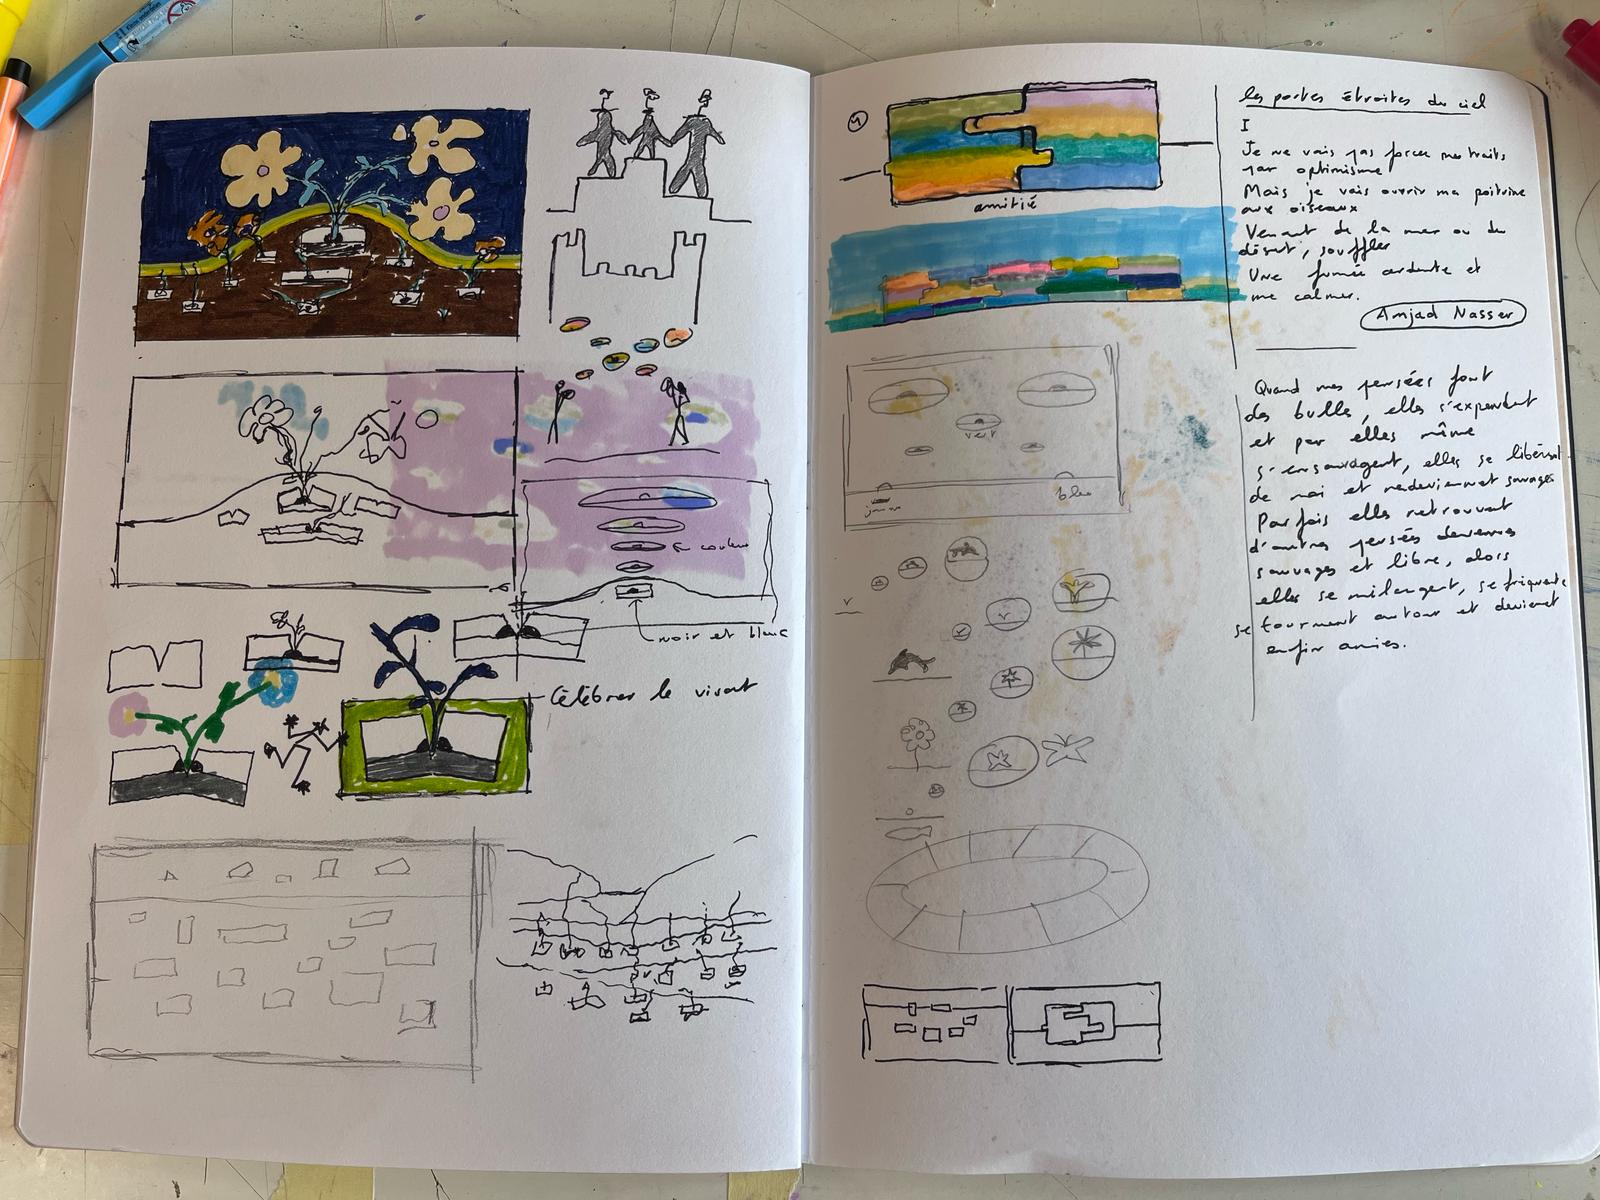 En couleur
noir et blanc
Célébrer le vivant
amitié
vert
bleu
jaune
les portes étroites du ciel
I
Je ne vais pas forcer mes traits
par optimisme
Mais je vais ouvrir ma poitrine
aux oiseaux
Venant de la mer ou du
désert, souffler
Une fumée ardente et
me calmer.
Amjad Nasser
Quand mes pensées font
des bulles, elles s'expendent
et par elles même
s'ensauvagent, elles se libèrent
de moi et redeviennent sauvages
Parfois elles retrouvent
d'autres pensées devenues
sauvages et libre, alors
elles se mélangent, se friquent
se tournent autour et devienent
enfin amies.